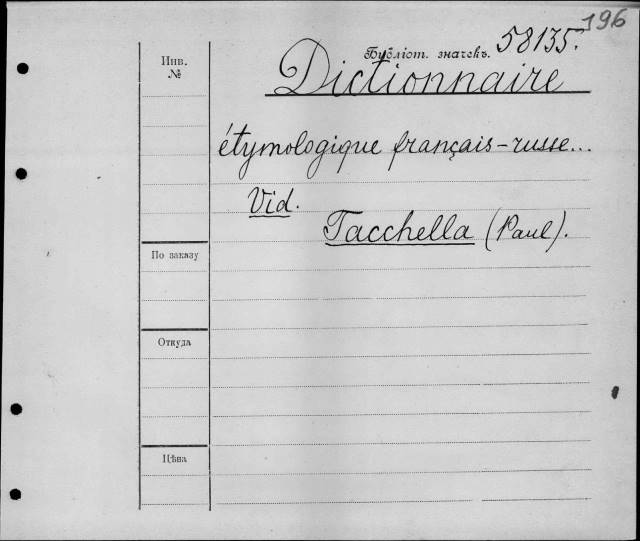 196
58135.
Бубліот. значекъ.
Инв.
№
Dictionnaire
étymologique français-russe...
Vid.
Tacchella (Paul).
По заказу
Откуда
Цѣна